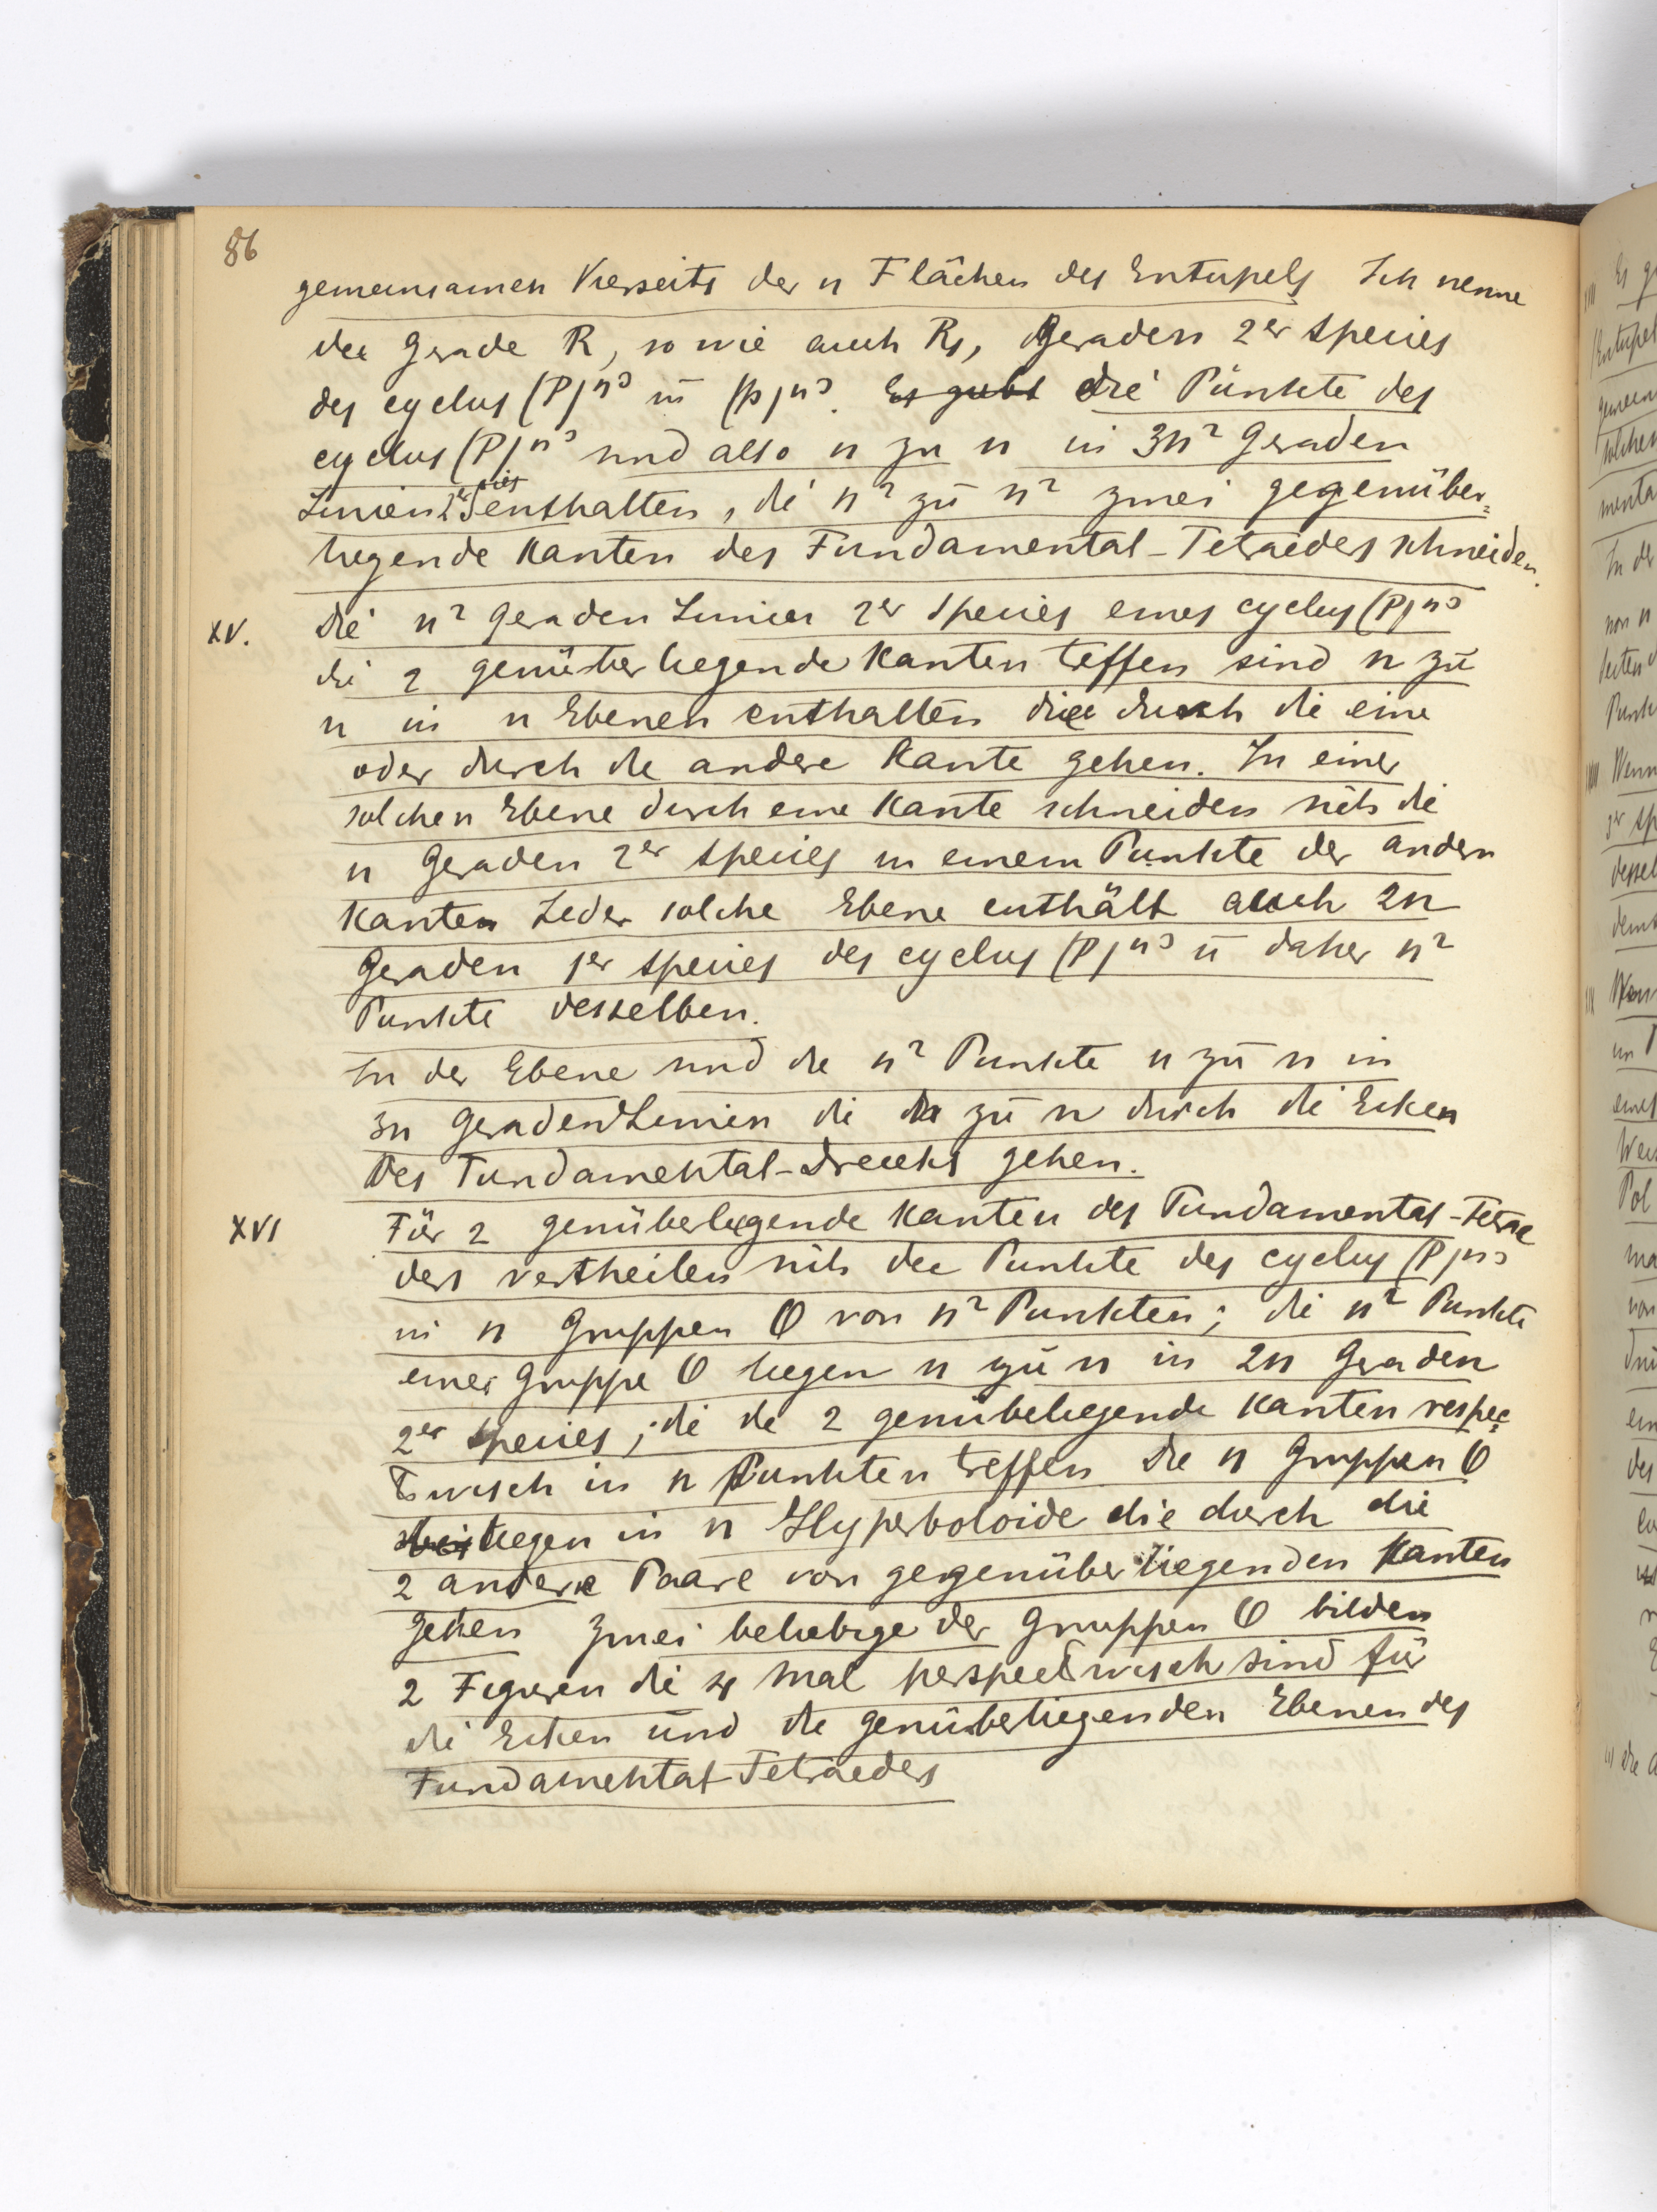 86
gemeinsamen Vierseits der n Flächen des Entupels Ich nenne
die Gerade R, so wie auch R₁, Geraden 2er Species
des cyclus (P)n³ ū (p)n³. Es giebt die Punkte des
cyclus (P)n³ sind also n zu n in 3n² Geraden
Linien 2er Spies enthalten, di n² zu n² zwei gegenüber=
liegende Kanten des Fundamental-Tetraeders schneiden.
XV. Die n² Geraden Linien 2er Species eines cyclus (P)n³
di 2 genüberliegende Kanten treffen sind n zu
n in n Ebenen enthalten die durch die eine
oder durch die andere Kante gehen. In einer
solchen Ebene durch eine Kante schneiden sich die
n Geraden 2er Species in einem Punkte der andern
Kanten Jeder solche Ebene enthält auch 2n
Geraden 1er Species des cyclus (P)n³ ū daher n²
Punkte desselben.
In der Ebene sind die n² Punkte n zu n in
3n Geraden Linien di zu n durch die Ecken
des Fundamental-Dreiecks gehen.
XVI Für 2 genüberliegende Kanten des Fundamental-Tetrae
ders vertheilen sich die Punkte des cyclus (P)n³
in n Gruppen O von n² Punkten; di n² Punkte
einer Gruppe O liegen n zu n in 2n Geraden
2er Species, di die 2 genüberliegende Kanten respec=
tivisch in n Punkten treffen Die n Gruppen O
liegen in n Hyperboloide die durch die
2 andere Paare von gegenüberliegenden Kanten
gehen Zwei beliebige der Gruppen O bilden
2 Figuren di 4 Mal perspectivisch sind für
di Ecken und die genüberliegenden Ebenen des
Fundamental-Tetraeders